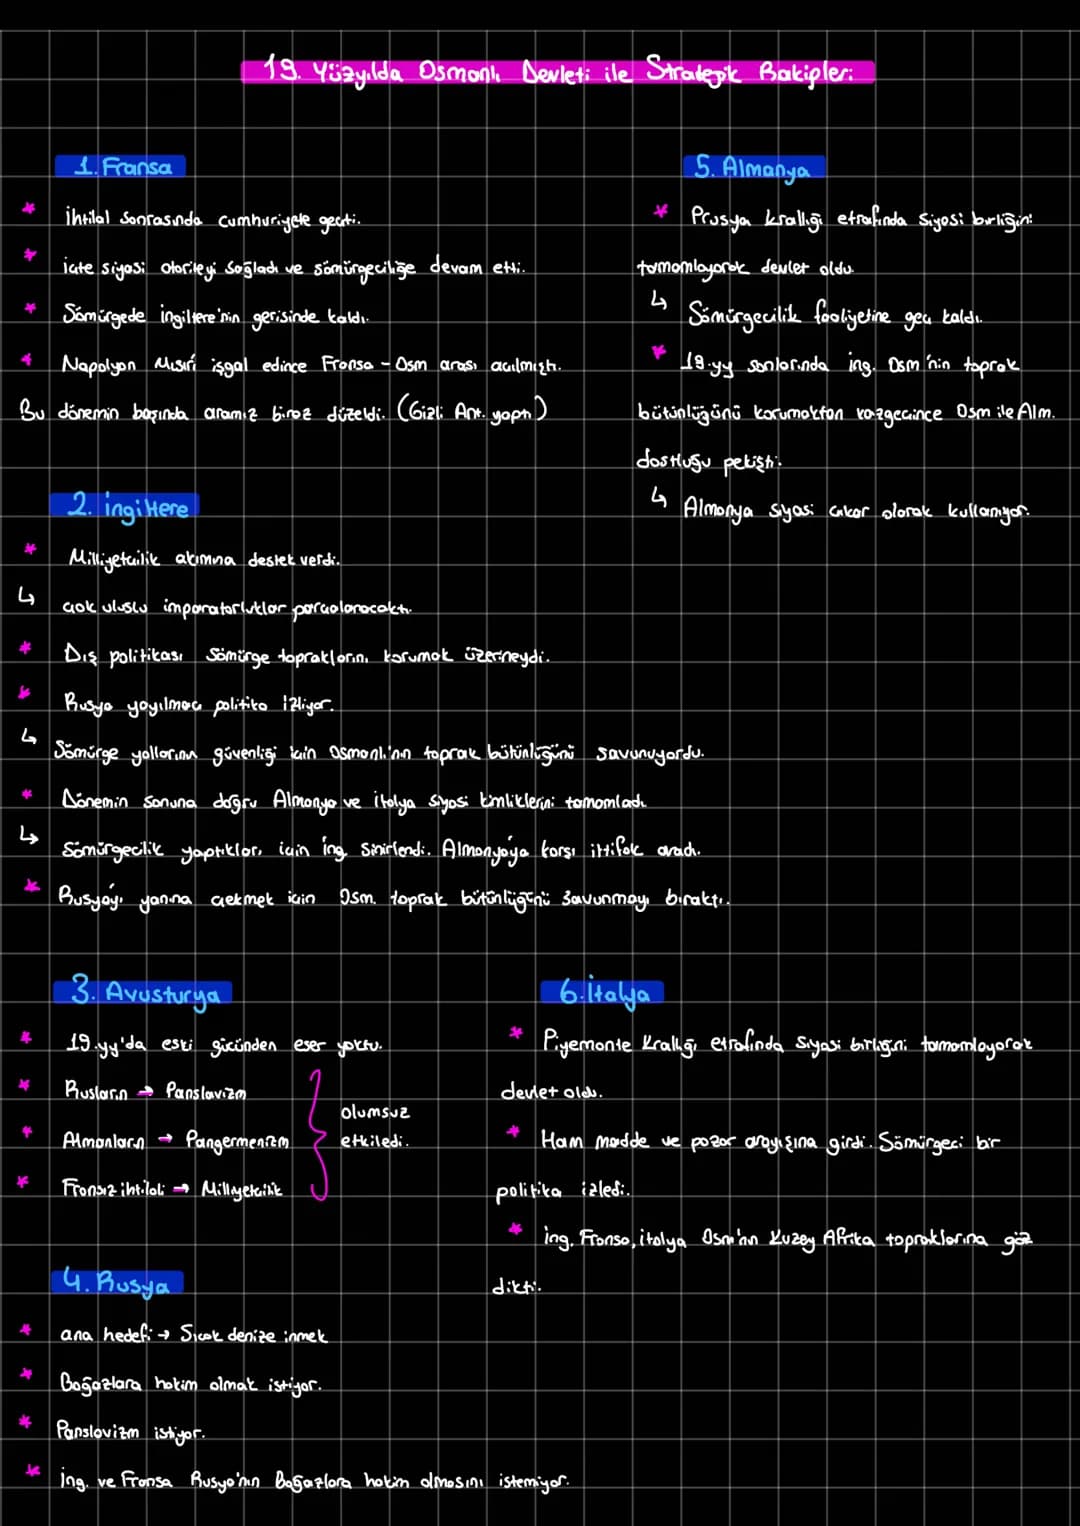 19. Yüzyılda Osmanlı Devleti ile Stratejik Rakipleri
1. Fransa
* İhtilal sonrasında cumhuriyete geçti.
* içte siyasi otoriteyi sağladı ve sömürgeciliğe devam etti.
* Sömürgede ingiltere'nin gerisinde kaldı.
* Napolyon Mısır'ı işgal edince Fransa - Osm arası açılmıştı.
Bu dönemin başında aramız biraz düzeldi. (Gizli Ant. yaptı)
2. ingiltere
* Milliyetçilik akımına destek verdi.
↳ çok uluslu imparatorluklar parçalanacaktı.
* Dış politikası sömürge topraklarını korumak üzerineydi.
* Rusya yayılmacı politika izliyor.
↳ Sömürge yollarının güvenliği için Osmanlı'nın toprak bütünlüğünü savunuyordu.
* Dönemin sonuna doğru Almanya ve italya siyasi kimliklerini tamamladı.
↳ Sömürgecilik yaptıkları için ing. sinirlendi. Almanya'ya karşı ittifak aradı.
* Rusya'yı yanına çekmek için Osm. toprak bütünlüğünü savunmayı bıraktı.
3. Avusturya
* 19.yy'da eski gücünden eser yoktu.
* Rusların → Panslavizm
* Almanların → Pangermenizm
* Fransız ihtilali → Milliyetçilik
olumsuz
etkiledi.
4. Rusya
* ana hedefi → Sıcak denize inmek
* Boğazlara hakim olmak istiyor.
* Panslavizm istiyor.
* ing. ve Fransa Rusya'nın Boğazlara hakim olmasını istemiyor.
5. Almanya
* Prusya krallığı etrafında siyasi birliğini
tamamlayarak devlet oldu.
↳ Sömürgecilik faaliyetine geç kaldı.
* 19.yy sonlarında ing. Osm'nin toprak
bütünlüğünü korumaktan vazgeçince Osm ile Alm.
dostluğu pekişti.
↳ Almanya siyasi çıkar olarak kullanıyor.
6. italya
* Piyemonte Krallığı etrafında siyasi birliğini tamamlayarak
devlet oldu.
* Ham madde ve pazar arayışına girdi. Sömürgeci bir
politika izledi.
* ing, Fransa, italya Osm'nın Kuzey Afrika topraklarına göz
dikti.